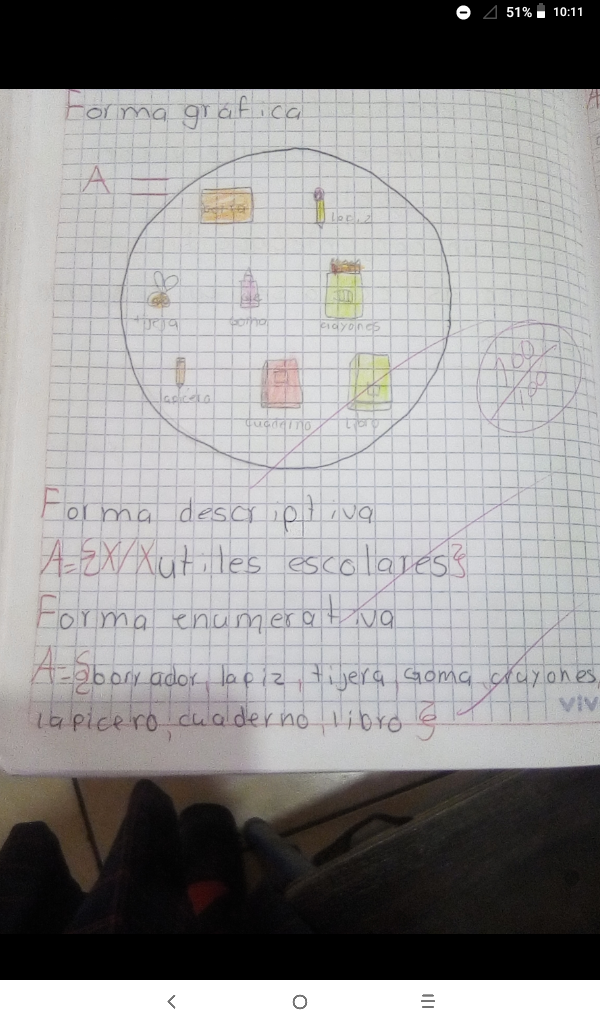 51% 10:11
Forma gráfica
A =
lapiz
tijera goma crayones
lapicero
cuaderno libro
100/100
Forma descriptiva
A={X/X utiles escolares}
Forma enumerativa
A={borrador, lapiz, tijera, Goma, crayones,
lapicero, cuaderno, libro}
viv